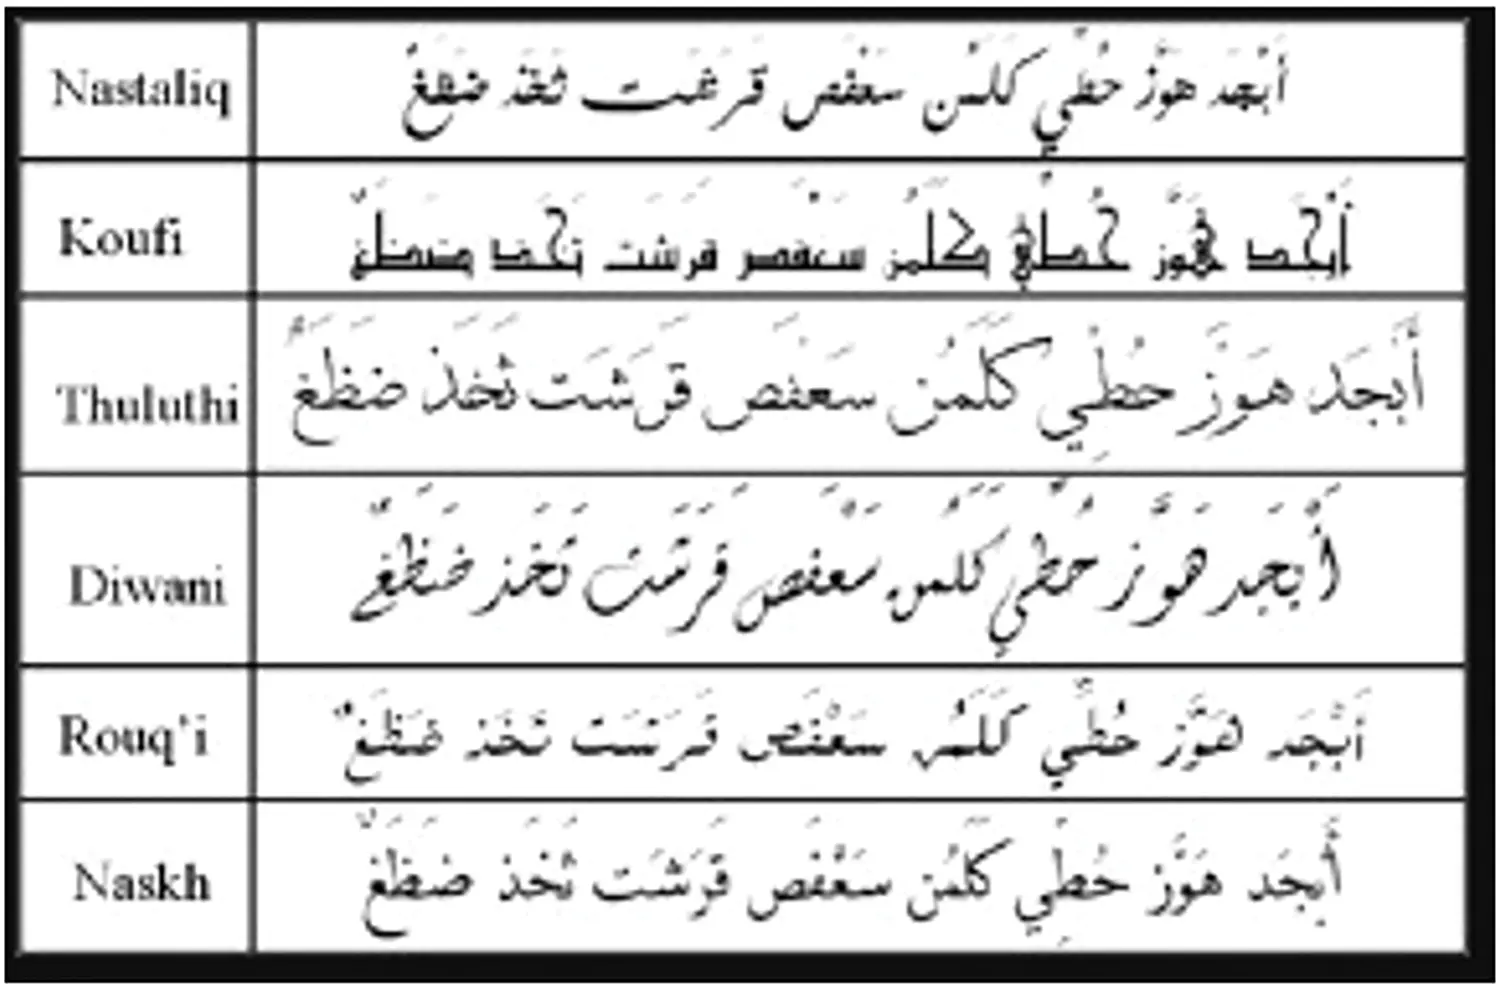 Nastaliq أَبْجَد هَوَّز حُطِّي كَلَمُن سَعْفَص قَرَشَت ثَخَذ ضَظَغٌ
Koufi أَبْجَد هَوَّز حُطِّي كَلَمُن سَعْفَص قَرَشَت ثَخَذ ضَظَغٌ
Thuluthi أَبْجَد هَوَّز حُطِّي كَلَمُن سَعْفَص قَرَشَت ثَخَذ ضَظَغٌ
Diwani أَبْجَد هَوَّز حُطِّي كَلَمُن سَعْفَص قَرَشَت ثَخَذ ضَظَغٌ
Rouq'i أَبْجَد هَوَّز حُطِّي كَلَمُن سَعْفَص قَرَشَت ثَخَذ ضَظَغٌ
Naskh أَبْجَد هَوَّز حُطِّي كَلَمُن سَعْفَص قَرَشَت ثَخَذ ضَظَغٌ